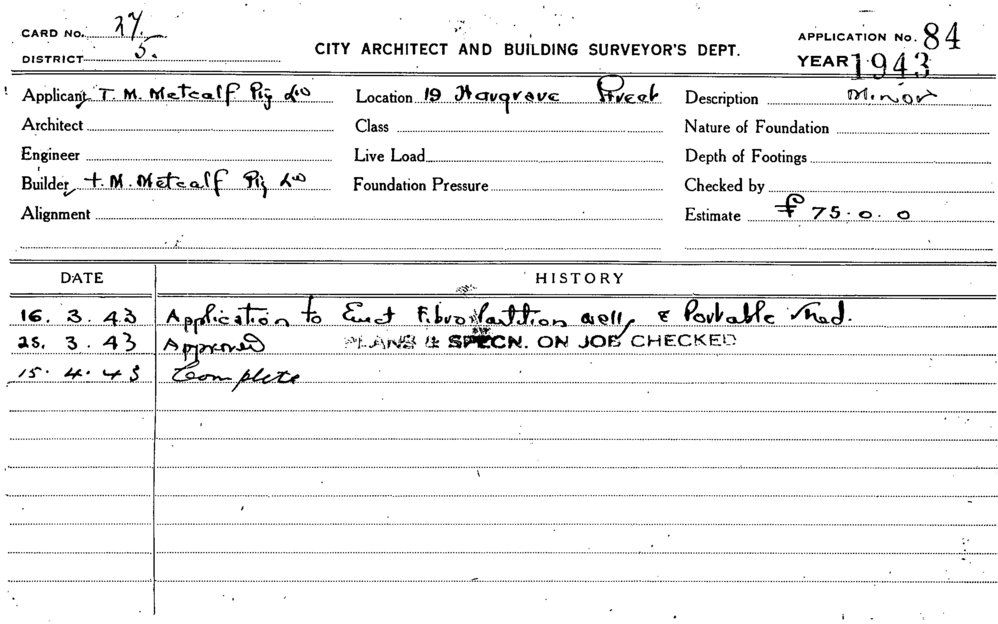 CARD No. 27.
DISTRICT 5.
CITY ARCHITECT AND BUILDING SURVEYOR'S DEPT.
APPLICATION No. 84
YEAR 1943
Applicant T. M. Metcalf Pty Ltd Location 19 Hargrave Street Description Minor
Architect Class Nature of Foundation
Engineer Live Load Depth of Footings
Builder T. M. Metcalf Pty Ltd Foundation Pressure Checked by
Alignment Estimate £ 75.0.0
DATE HISTORY
16. 3. 43 Application to Erect Fibro Partition & Portable shed.
25. 3. 43 Approved PLANS & SPECN. ON JOB CHECKED
15. 4. 43 Complete